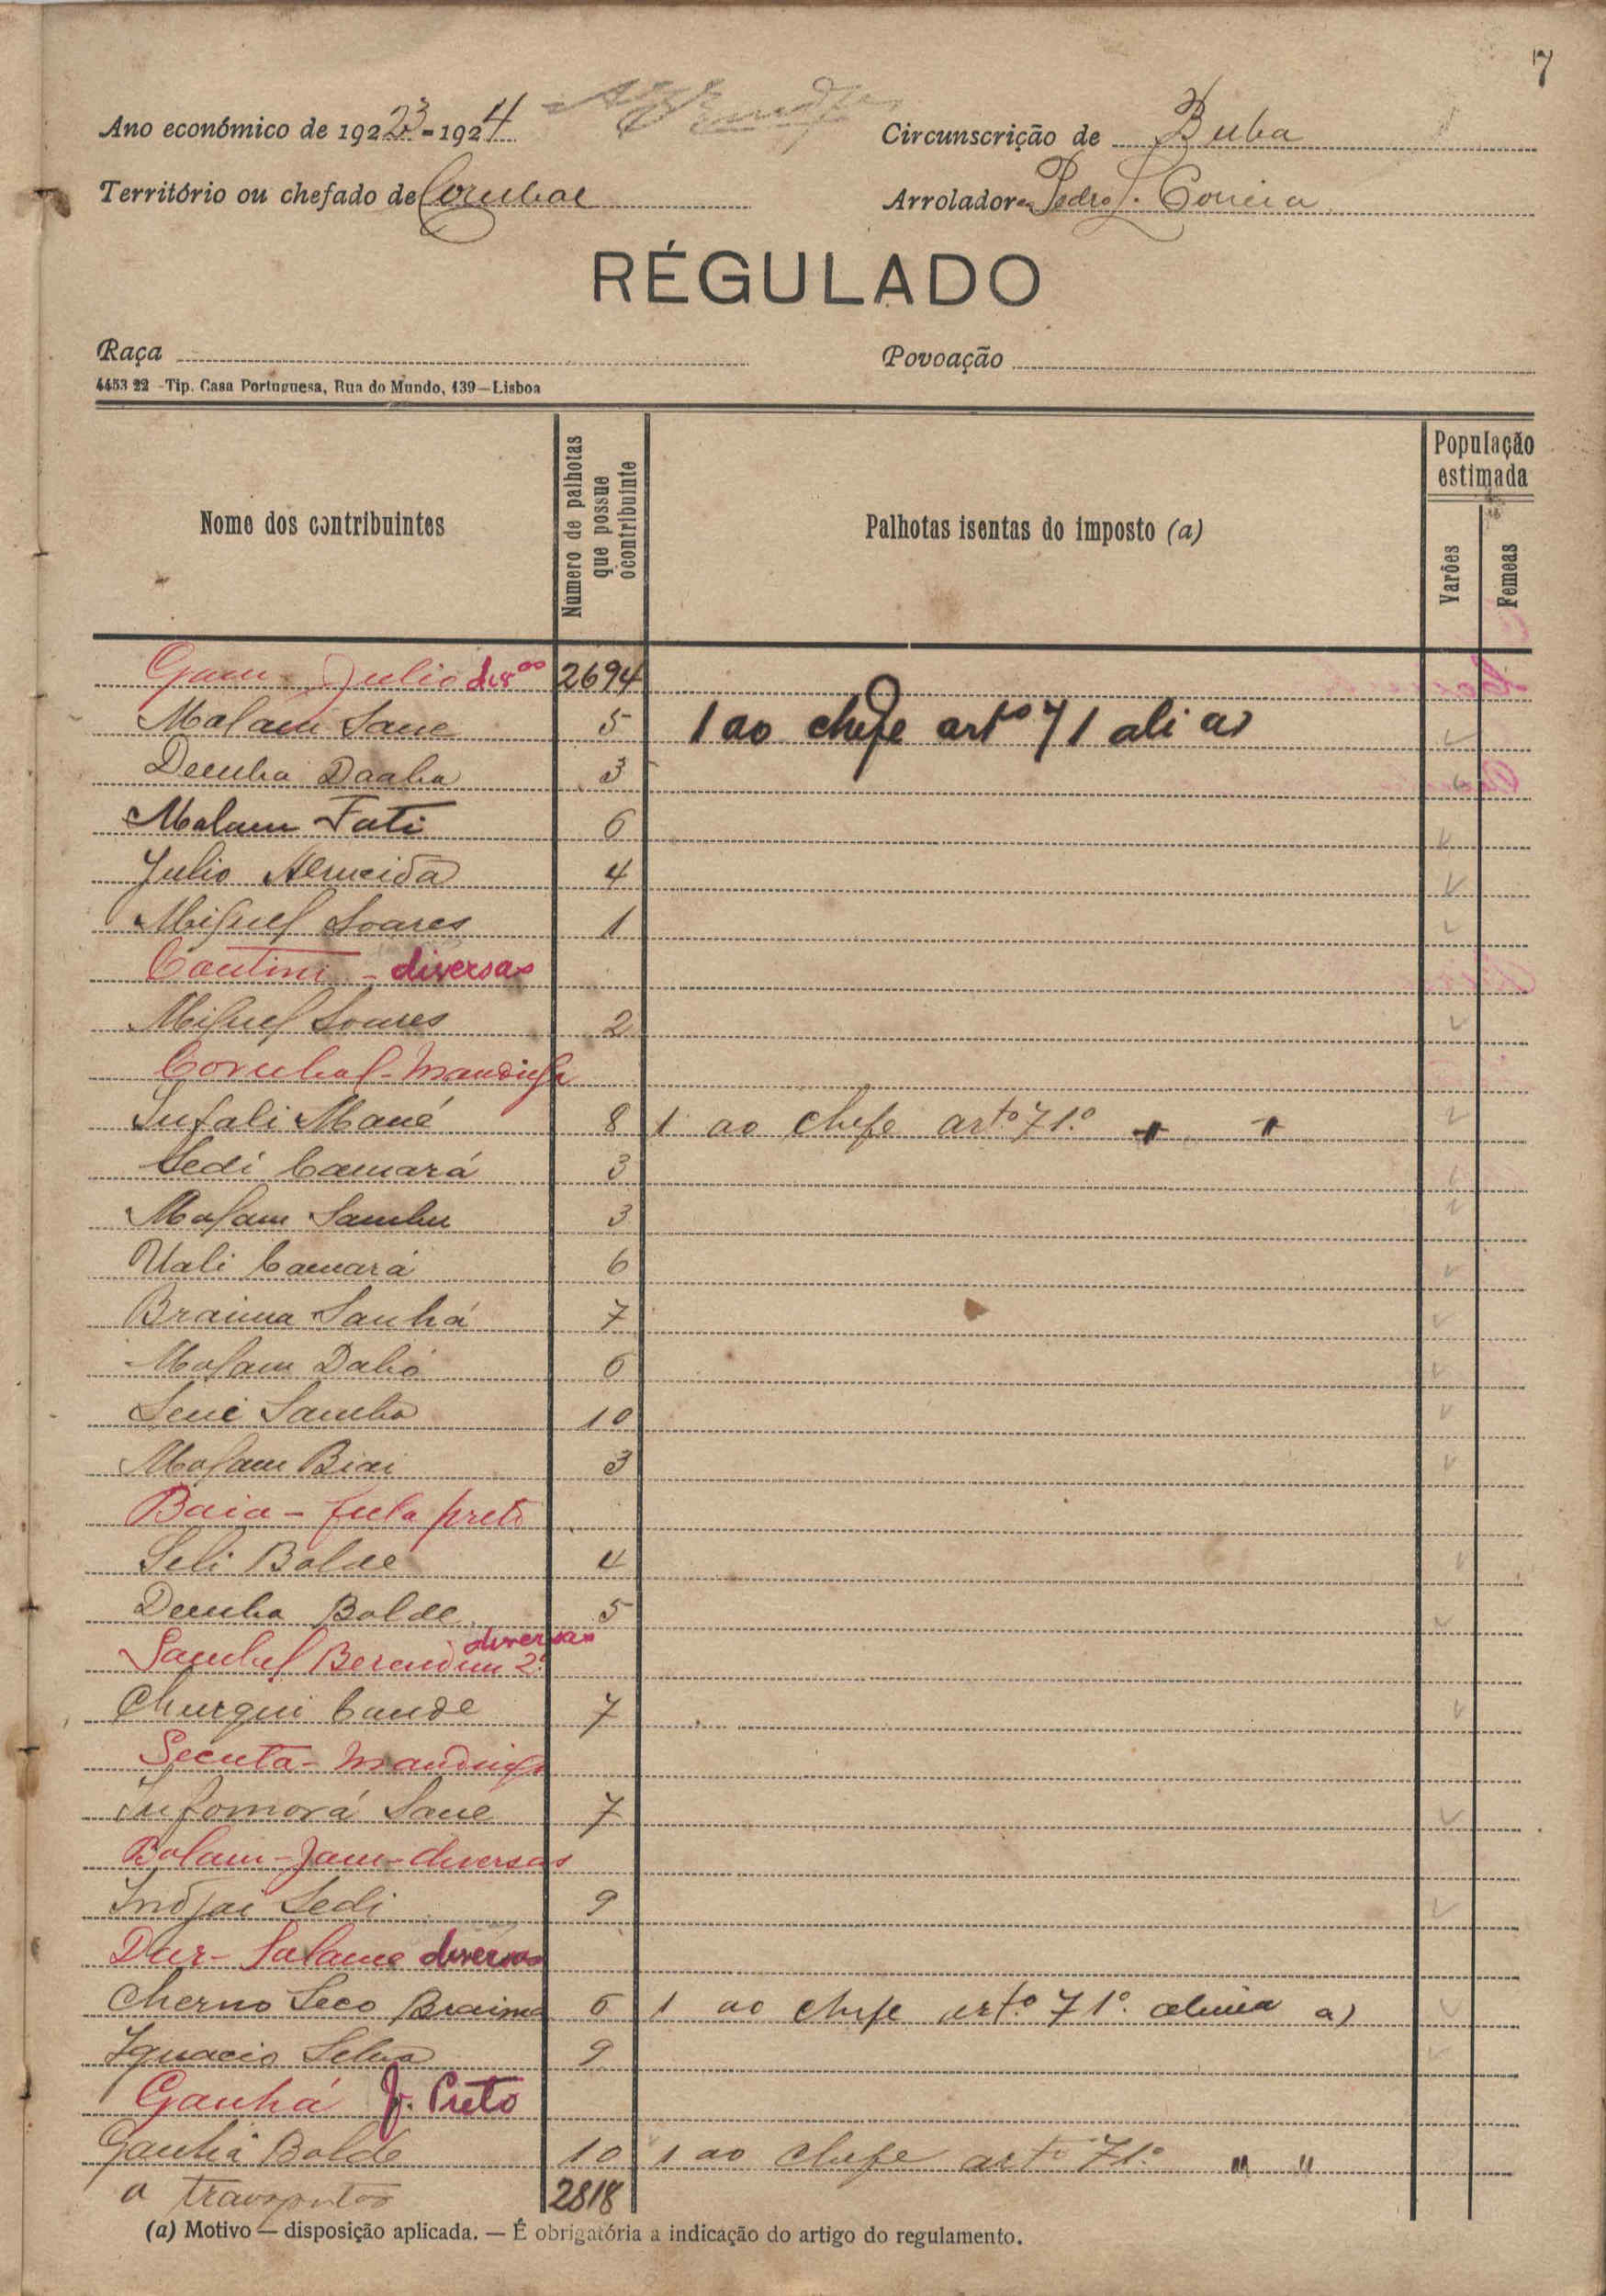 7
Ano económico de 1923-1924
Circunscrição de Buba
Território ou chefado de Corubal
Arrolador Pedro Correia
RÉGULADO
Raça
Povoação
4453 22 -Tip. Casa Portuguesa, Rua do Mundo, 139—Lisboa
Nome dos contribuintes
Número de palhotas que possue o contribuinte
Palhotas isentas do imposto (a)
População estimada
Varões
Femeas
Julio 2694
Malam Sane 5 1 ao chefe artº 71 ali a)
Demba Daaba 3
Malam Fati 6
Julio Almeida 4
Miguel Soares 1
Cantini - diversas
Miguel Soares 2
Corubal - Mandinga
Sufali Mané 8 1 ao chefe artº 71º " "
Sedi Camará 3
Malam Sambu 3
Uali Camará 6
Braima Sanhá 7
Malam Dabó 6
Seni Samba 10
Malam Biai 3
Baia - fula preto
Seli Balde 4
Demba Balde 5
diversas
Sambel Berendim 2º
Churqui Cande 7
Secuta - Mandinga
Infomorá Sané 7
Bolam - Jam - diversas
Indjai Sedi 9
Dar - Salame diversas
Cherno Seco Braima 6 1 ao chefe artº 71º. alinea a)
Ignacio Silva 9
Ganhá f. Preto
Ganhá Balde 10 1 ao chefe artº 71º " "
a transportar 2818
(a) Motivo — disposição aplicada. — É obrigatória a indicação do artigo do regulamento.